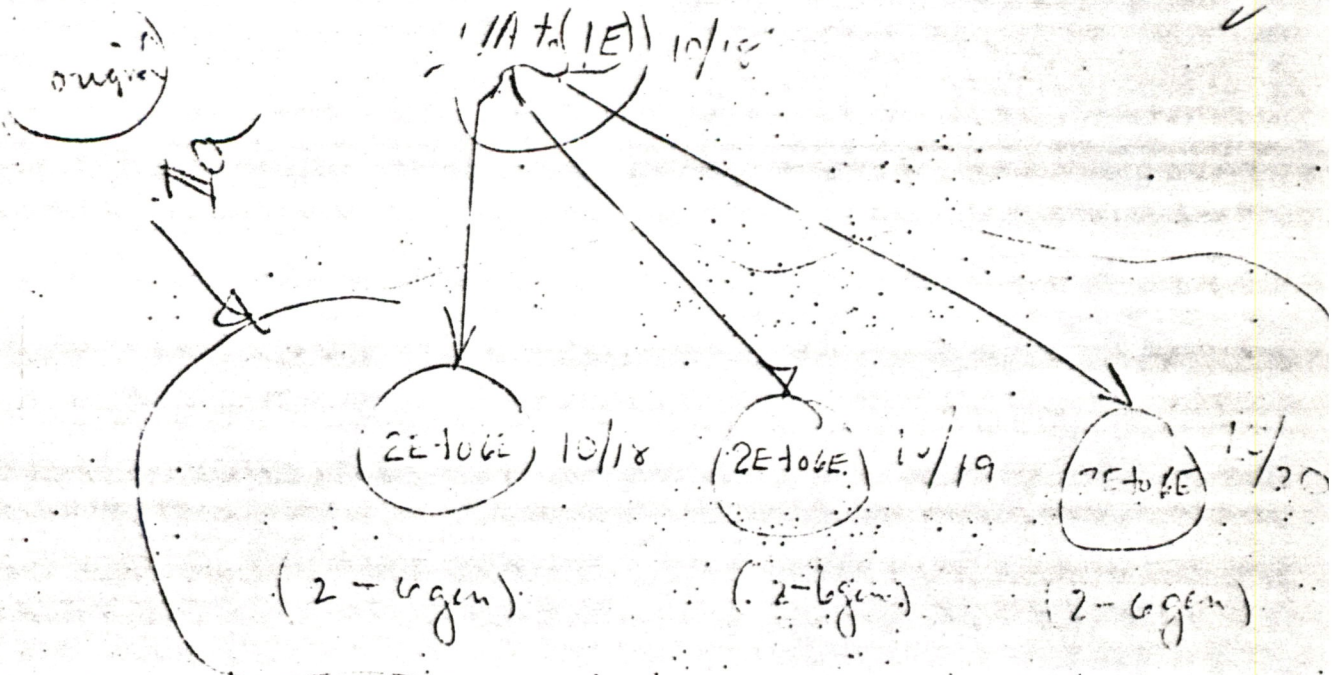 origin
1/A to (1E) 10/18
No
2E to 6E 10/18
2E to 6E 10/19
2E to 6E 10/20
(2-6 gen)
(2-6 gen)
(2-6 gen)